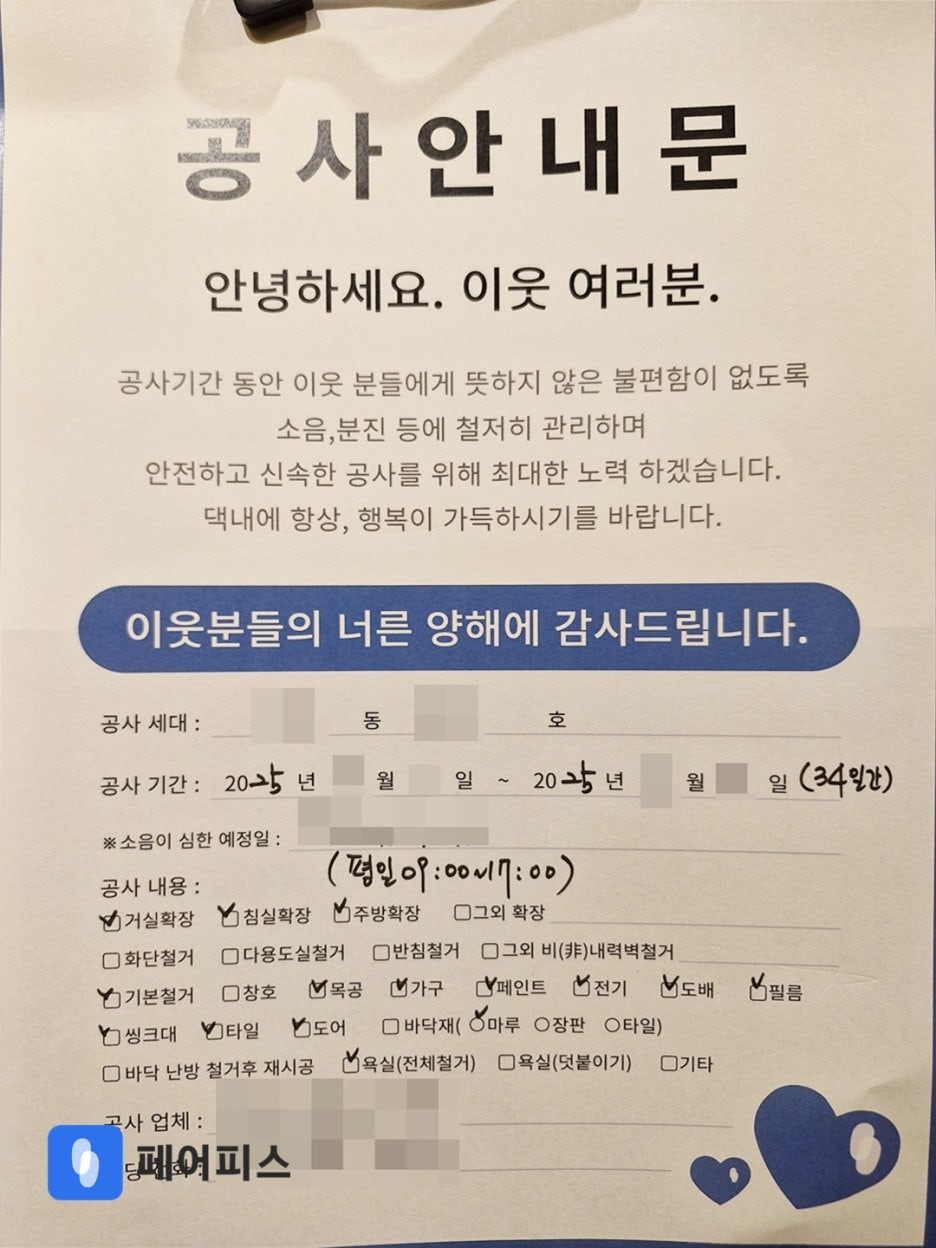 공사안내문
안녕하세요. 이웃 여러분.
공사기간 동안 이웃 분들에게 뜻하지 않은 불편함이 없도록
소음,분진 등에 철저히 관리하며
안전하고 신속한 공사를 위해 최대한 노력 하겠습니다.
댁내에 항상, 행복이 가득하시기를 바랍니다.
이웃분들의 너른 양해에 감사드립니다.
공사 세대 : 동 호
공사 기간 : 2025 년 월 일 ~ 2025 년 월 일 (34일간)
※소음이 심한 예정일 :
(평일 09:00~17:00)
공사 내용 :
거실확장 침실확장 주방확장 그외 확장
화단철거 다용도실철거 반침철거 그외 비(非)내력벽철거
기본철거 창호 목공 가구 페인트 전기 도배 필름
씽크대 타일 도어 바닥재( 마루 장판 타일)
바닥 난방 철거후 재시공 욕실(전체철거) 욕실(덧붙이기) 기타
공사 업체 :
페어피스